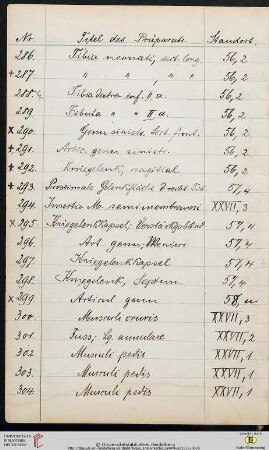 Nr. Titel des Präparats. Standort.
286. Tibia neonati, sect. long. 56, 2
+ 287. " " , " 56, 2
288. Tibia dextra inf. II a. 56, 2
289. Fibula " " II a. 56, 2
x 290. Genu sinistr. Sect. front. 56, 2
+ 291. Artic. genu sinistr. 56, 2
+ 292. Kniegelenk, sagittal 56, 2
+ 293. Proximale Gelenkfläche d. recht. Tib. 57, 4
294. Insertio M. semimembranosi XXVII, 3
x 295. Kniegelenkkapsel; Verstärkgsband 57, 4
296. Art. genu; Menisci 57, 4
297. Kniegelenkkapsel 57, 4
298. Kniegelenk, Septum. 57, 4
x 299. Articul. genu 58,
300 Musculi cruris XXVII, 3
301. Fuss; Lg. annulare XXVII, 2
302 Musculi pedis XXVII, 1
303. Musculi pedis XXVII, 1
304. Musculi pedis XXVII, 1
UNIVERSITÄTS-
BIBLIOTHEK
HEIDELBERG
© Universitätsbibliothek Heidelberg